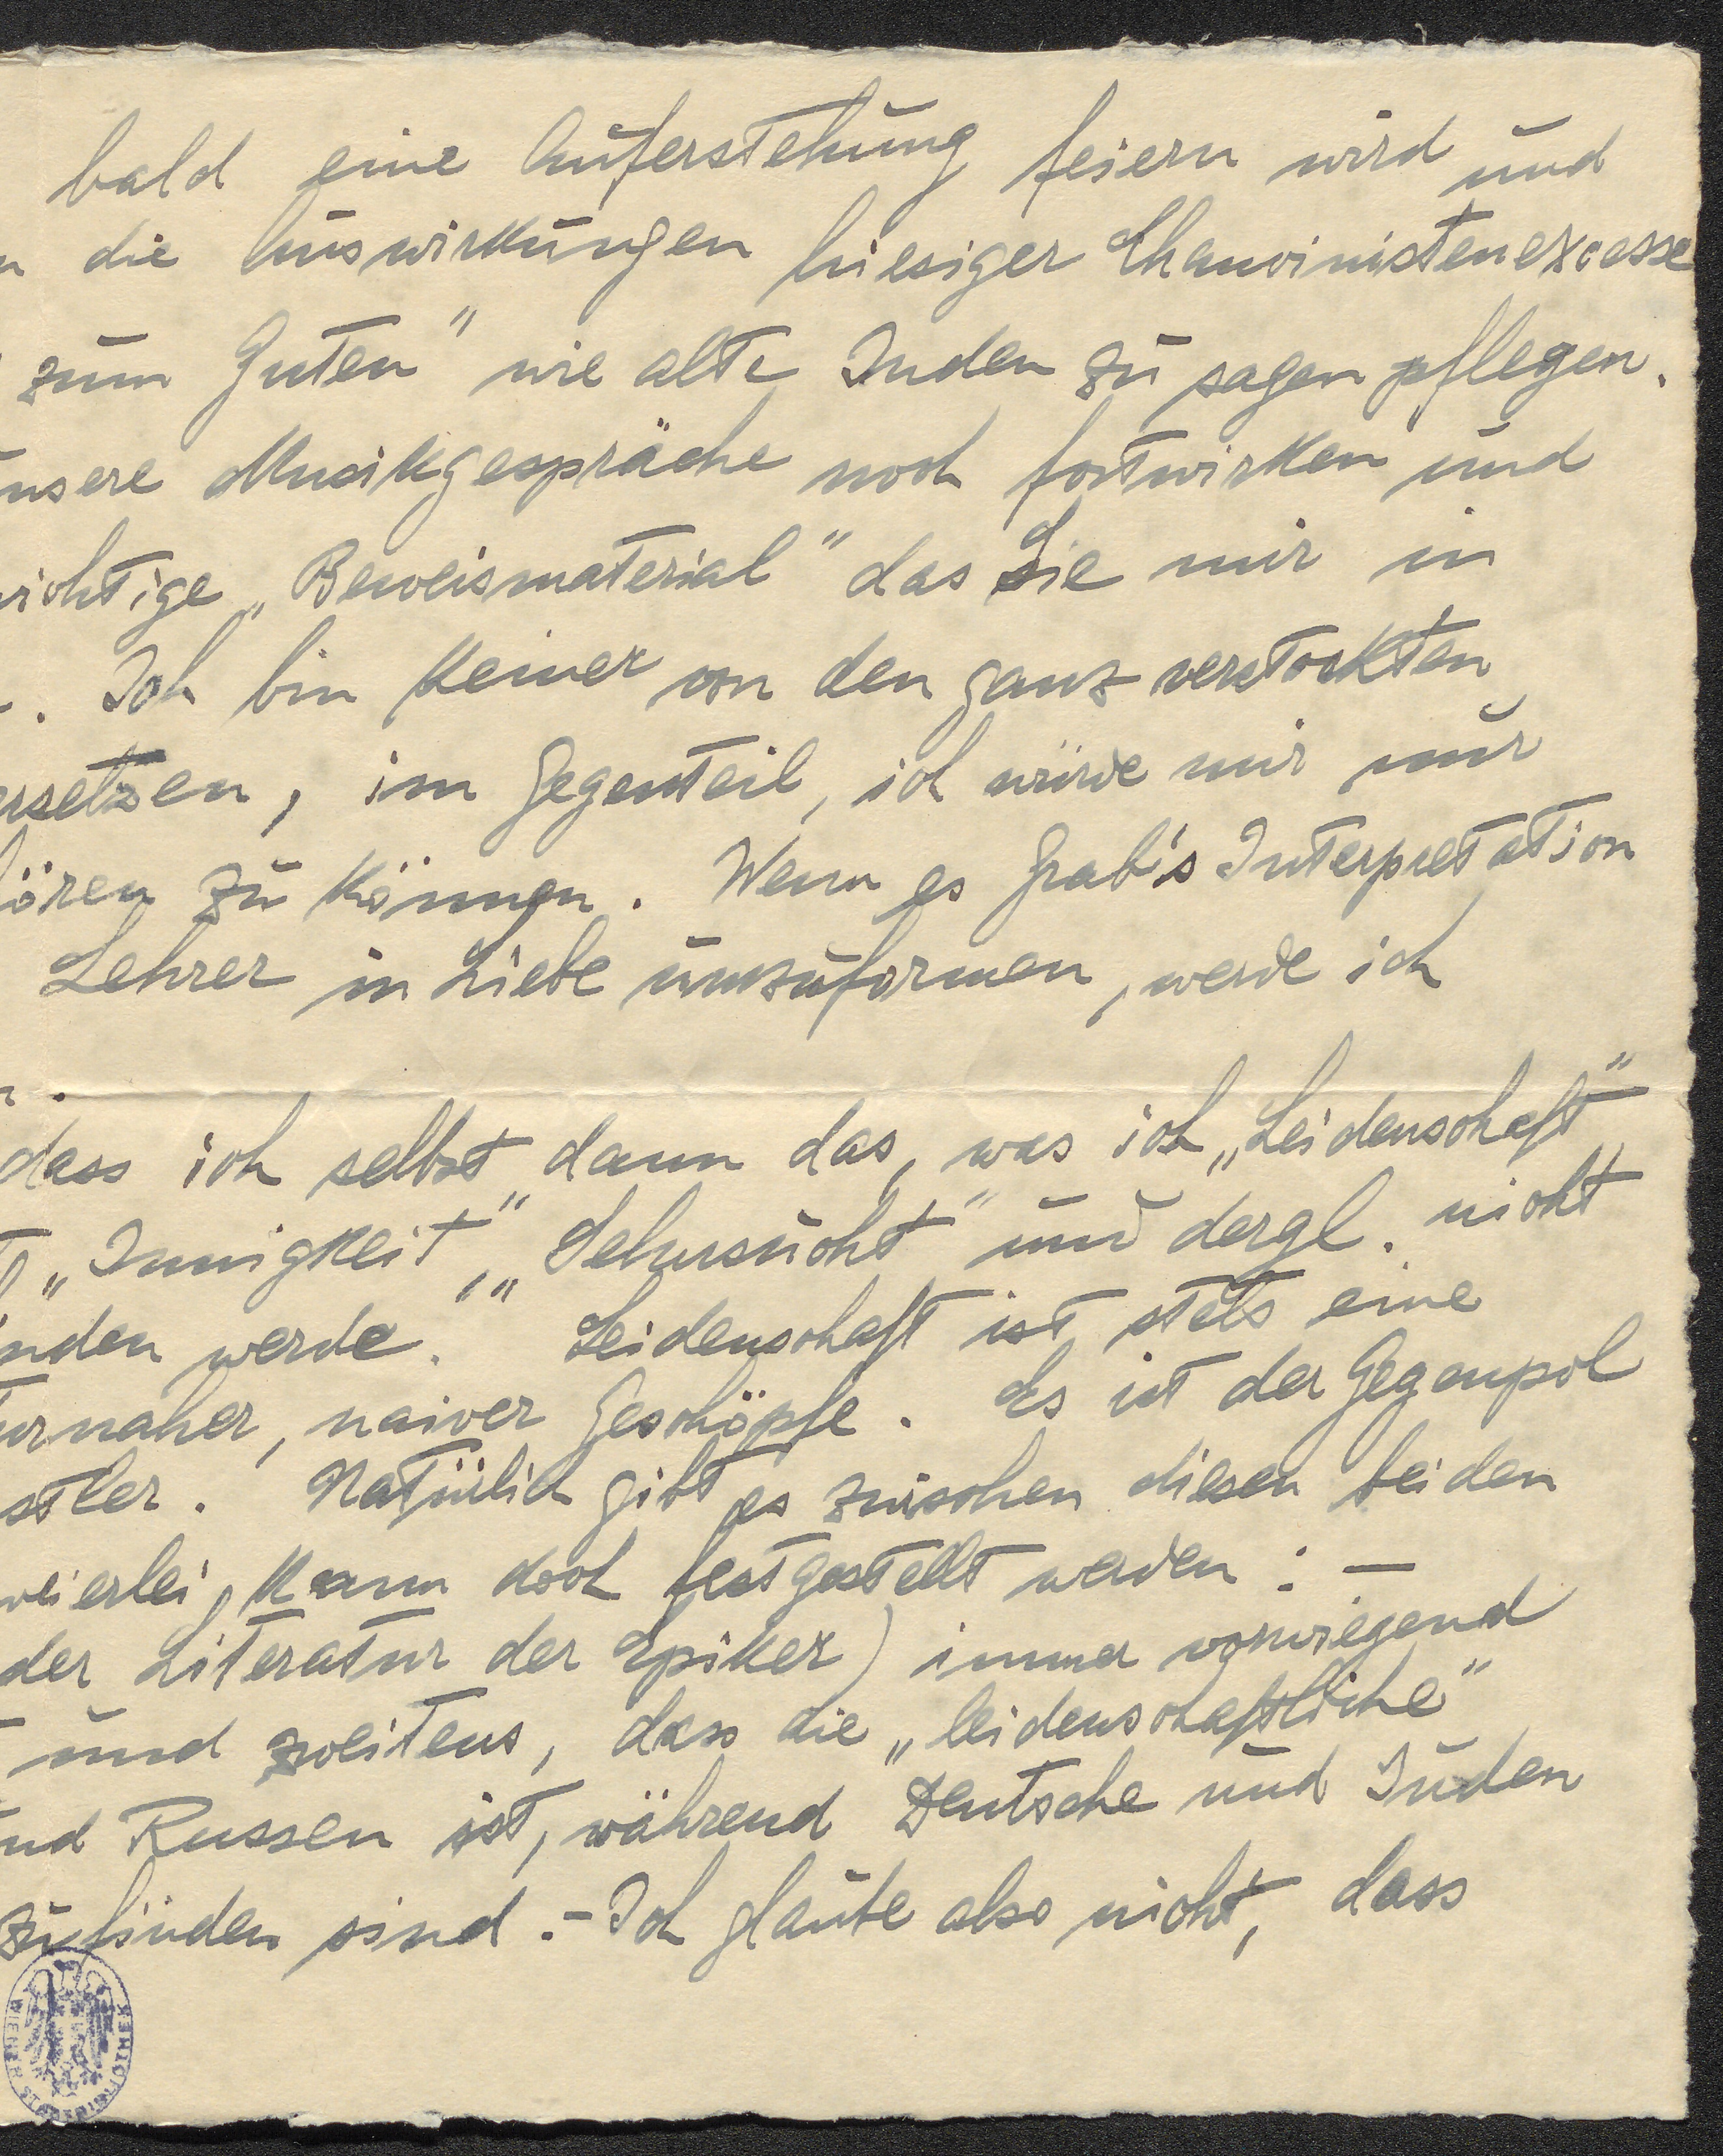 bald eine Auferstehung feiern wird und
die Auswirkungen hiesiger Chauvinistenexcesse
zum Guten" wie alte Juden zu sagen pflegen.
nsere Musikgespräche noch fortwirken und
ichtige „Beweismaterial" das Sie mir in
. Ich bin keiner von den ganz verstockten
rsetzen, im Gegenteil, ich würde mir nur
ören zu können. Wenn es Grab's Interpretation
Lehrer in Liebe umzuformen, werde ich
.
dass ich selbst dann das, was ich „Leidenschaft"
„Innigkeit", „Sehnsucht" und dergl. nicht
nden werde."" Leidenschaft ist stets eine
urnaher, naiver Geschöpfe. Es ist der Gegenpol
stler. Natürlich gibt es zwischen diesen beiden
weierlei, kann doch festgestellt werden: –
der Literatur der Epiker) immer vorwiegend
und zweitens, dass die „leidenschaftliche"
nd Russen ist, während Deutsche und Juden
zufinden sind. – Ich glaube also nicht, dass
WIENER STADT BIBLIOTHEK